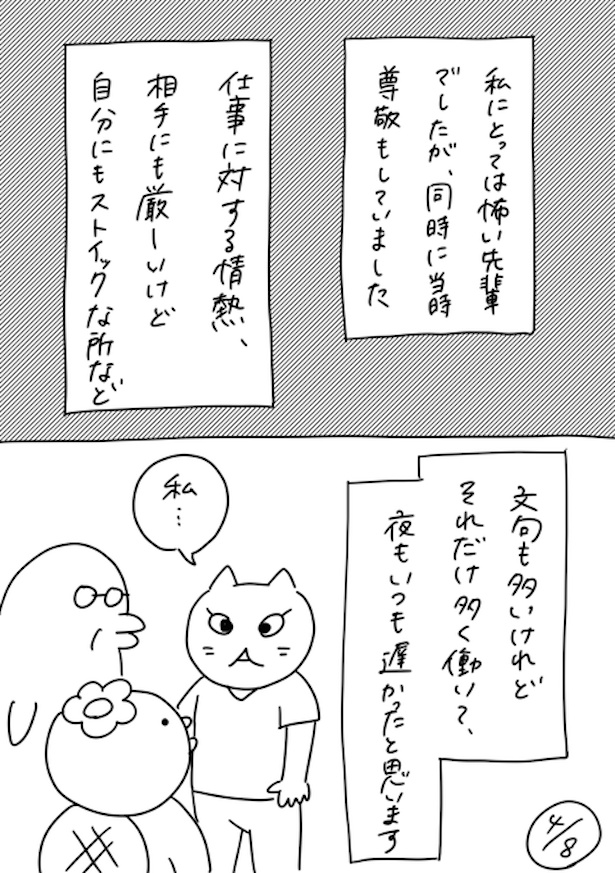 私にとっては怖い先輩
でしたが、同時に当時
尊敬もしていました
仕事に対する情熱、
相手にも厳しいけど
自分にもストイックな所など
文句も多いけれど
それだけ多く働いて、
夜もいつも遅かったと思います
私…
4/8